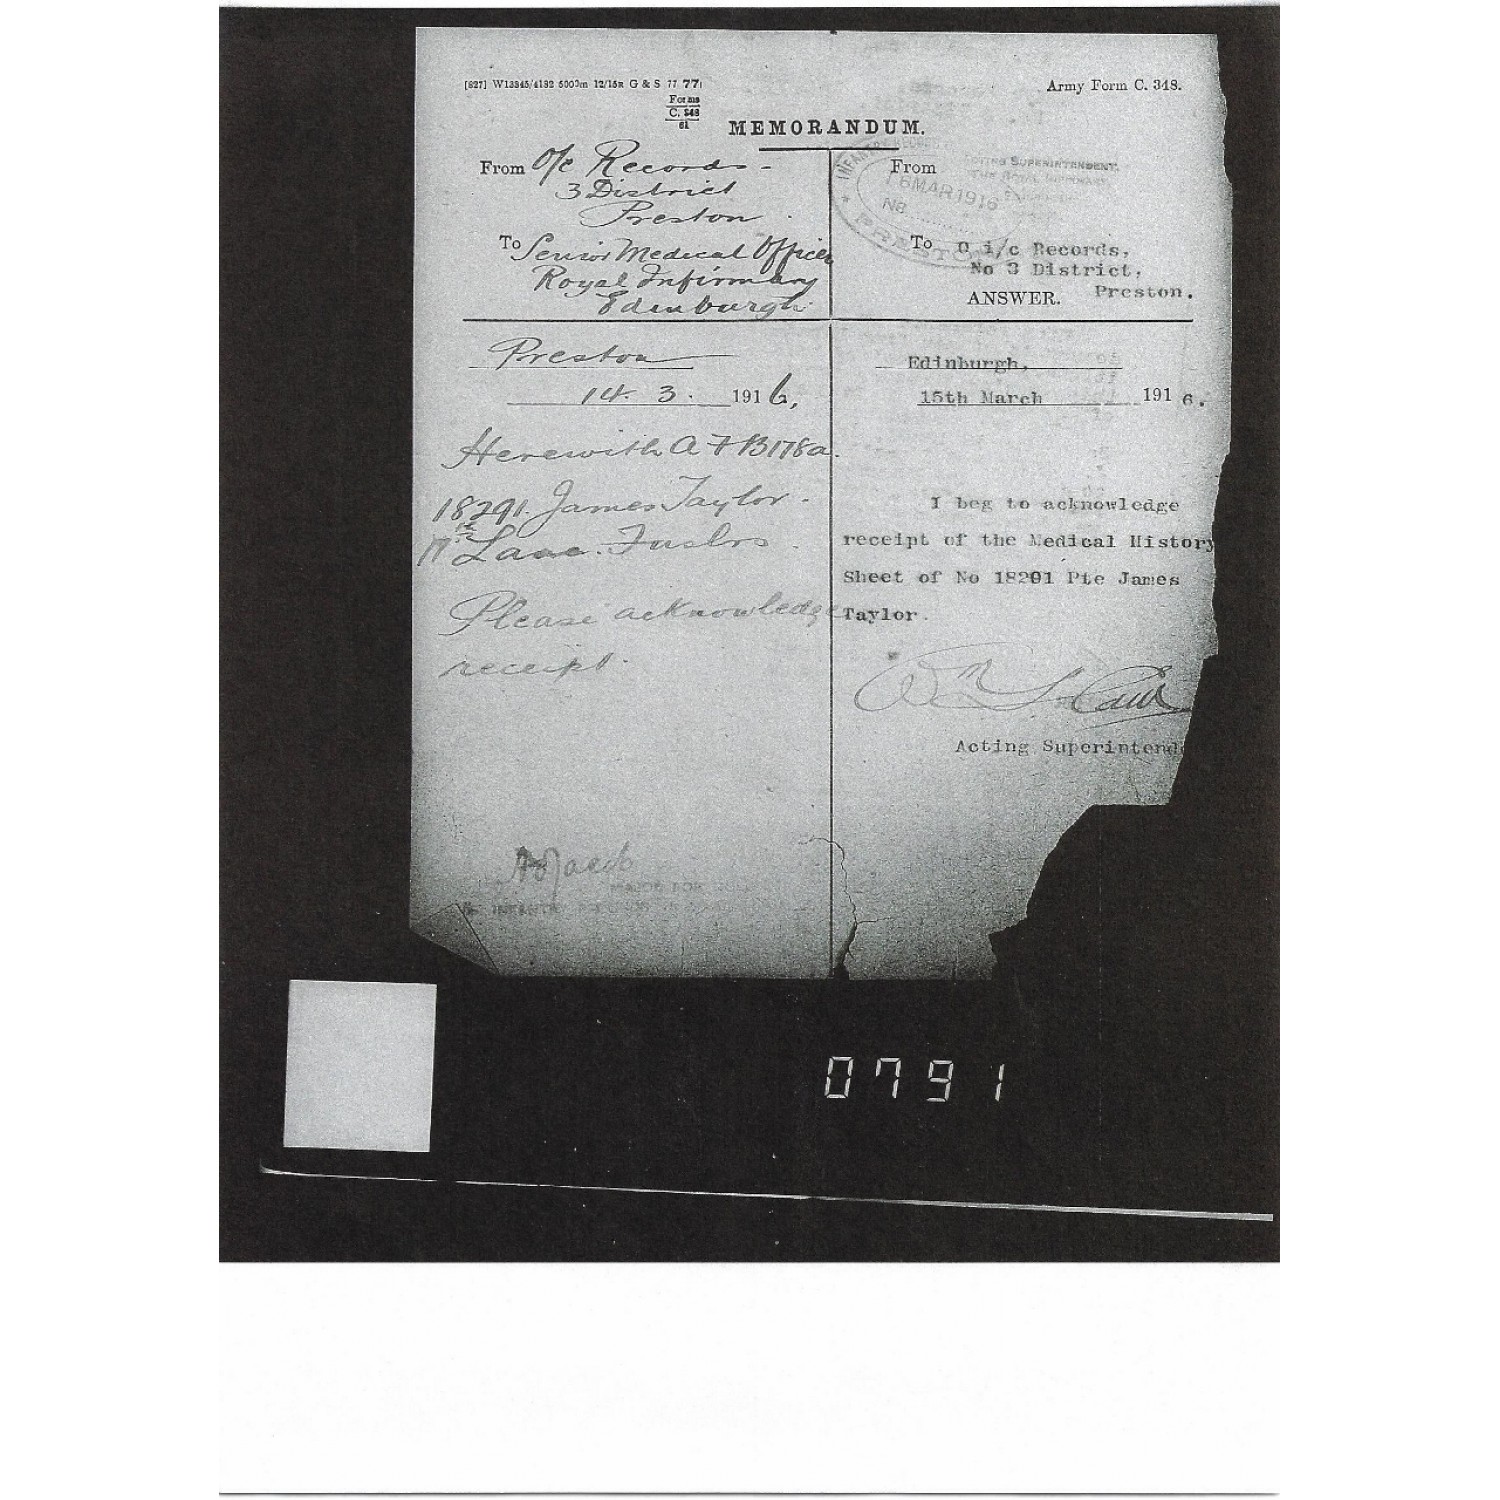 [827] W13345/4132 5000m 12/15R G & S 77 77
Army Form C. 348.
Forms
C. 348
61
MEMORANDUM.
From O/c Records -
3 District
Preston
To Senior Medical Officer
Royal Infirmary
Edinburgh
Preston
14. 3. 1916,
Herewith A F B178a.
18291. James Taylor.
Lanc. Fuslrs.
Please acknowledge
receipt.
MAJOR FOR
INFANTRY
From
ACTING SUPERINTENDENT,
THE ROYAL INFIRMARY,
INFANTRY RECORD
16 MAR 1916
No
PRESTON
To O i/c Records,
No 3 District,
Preston.
ANSWER.
Edinburgh,
15th March 1916.
I beg to acknowledge
receipt of the Medical History
Sheet of No 18291 Pte James
Taylor.
Acting Superintend
0791